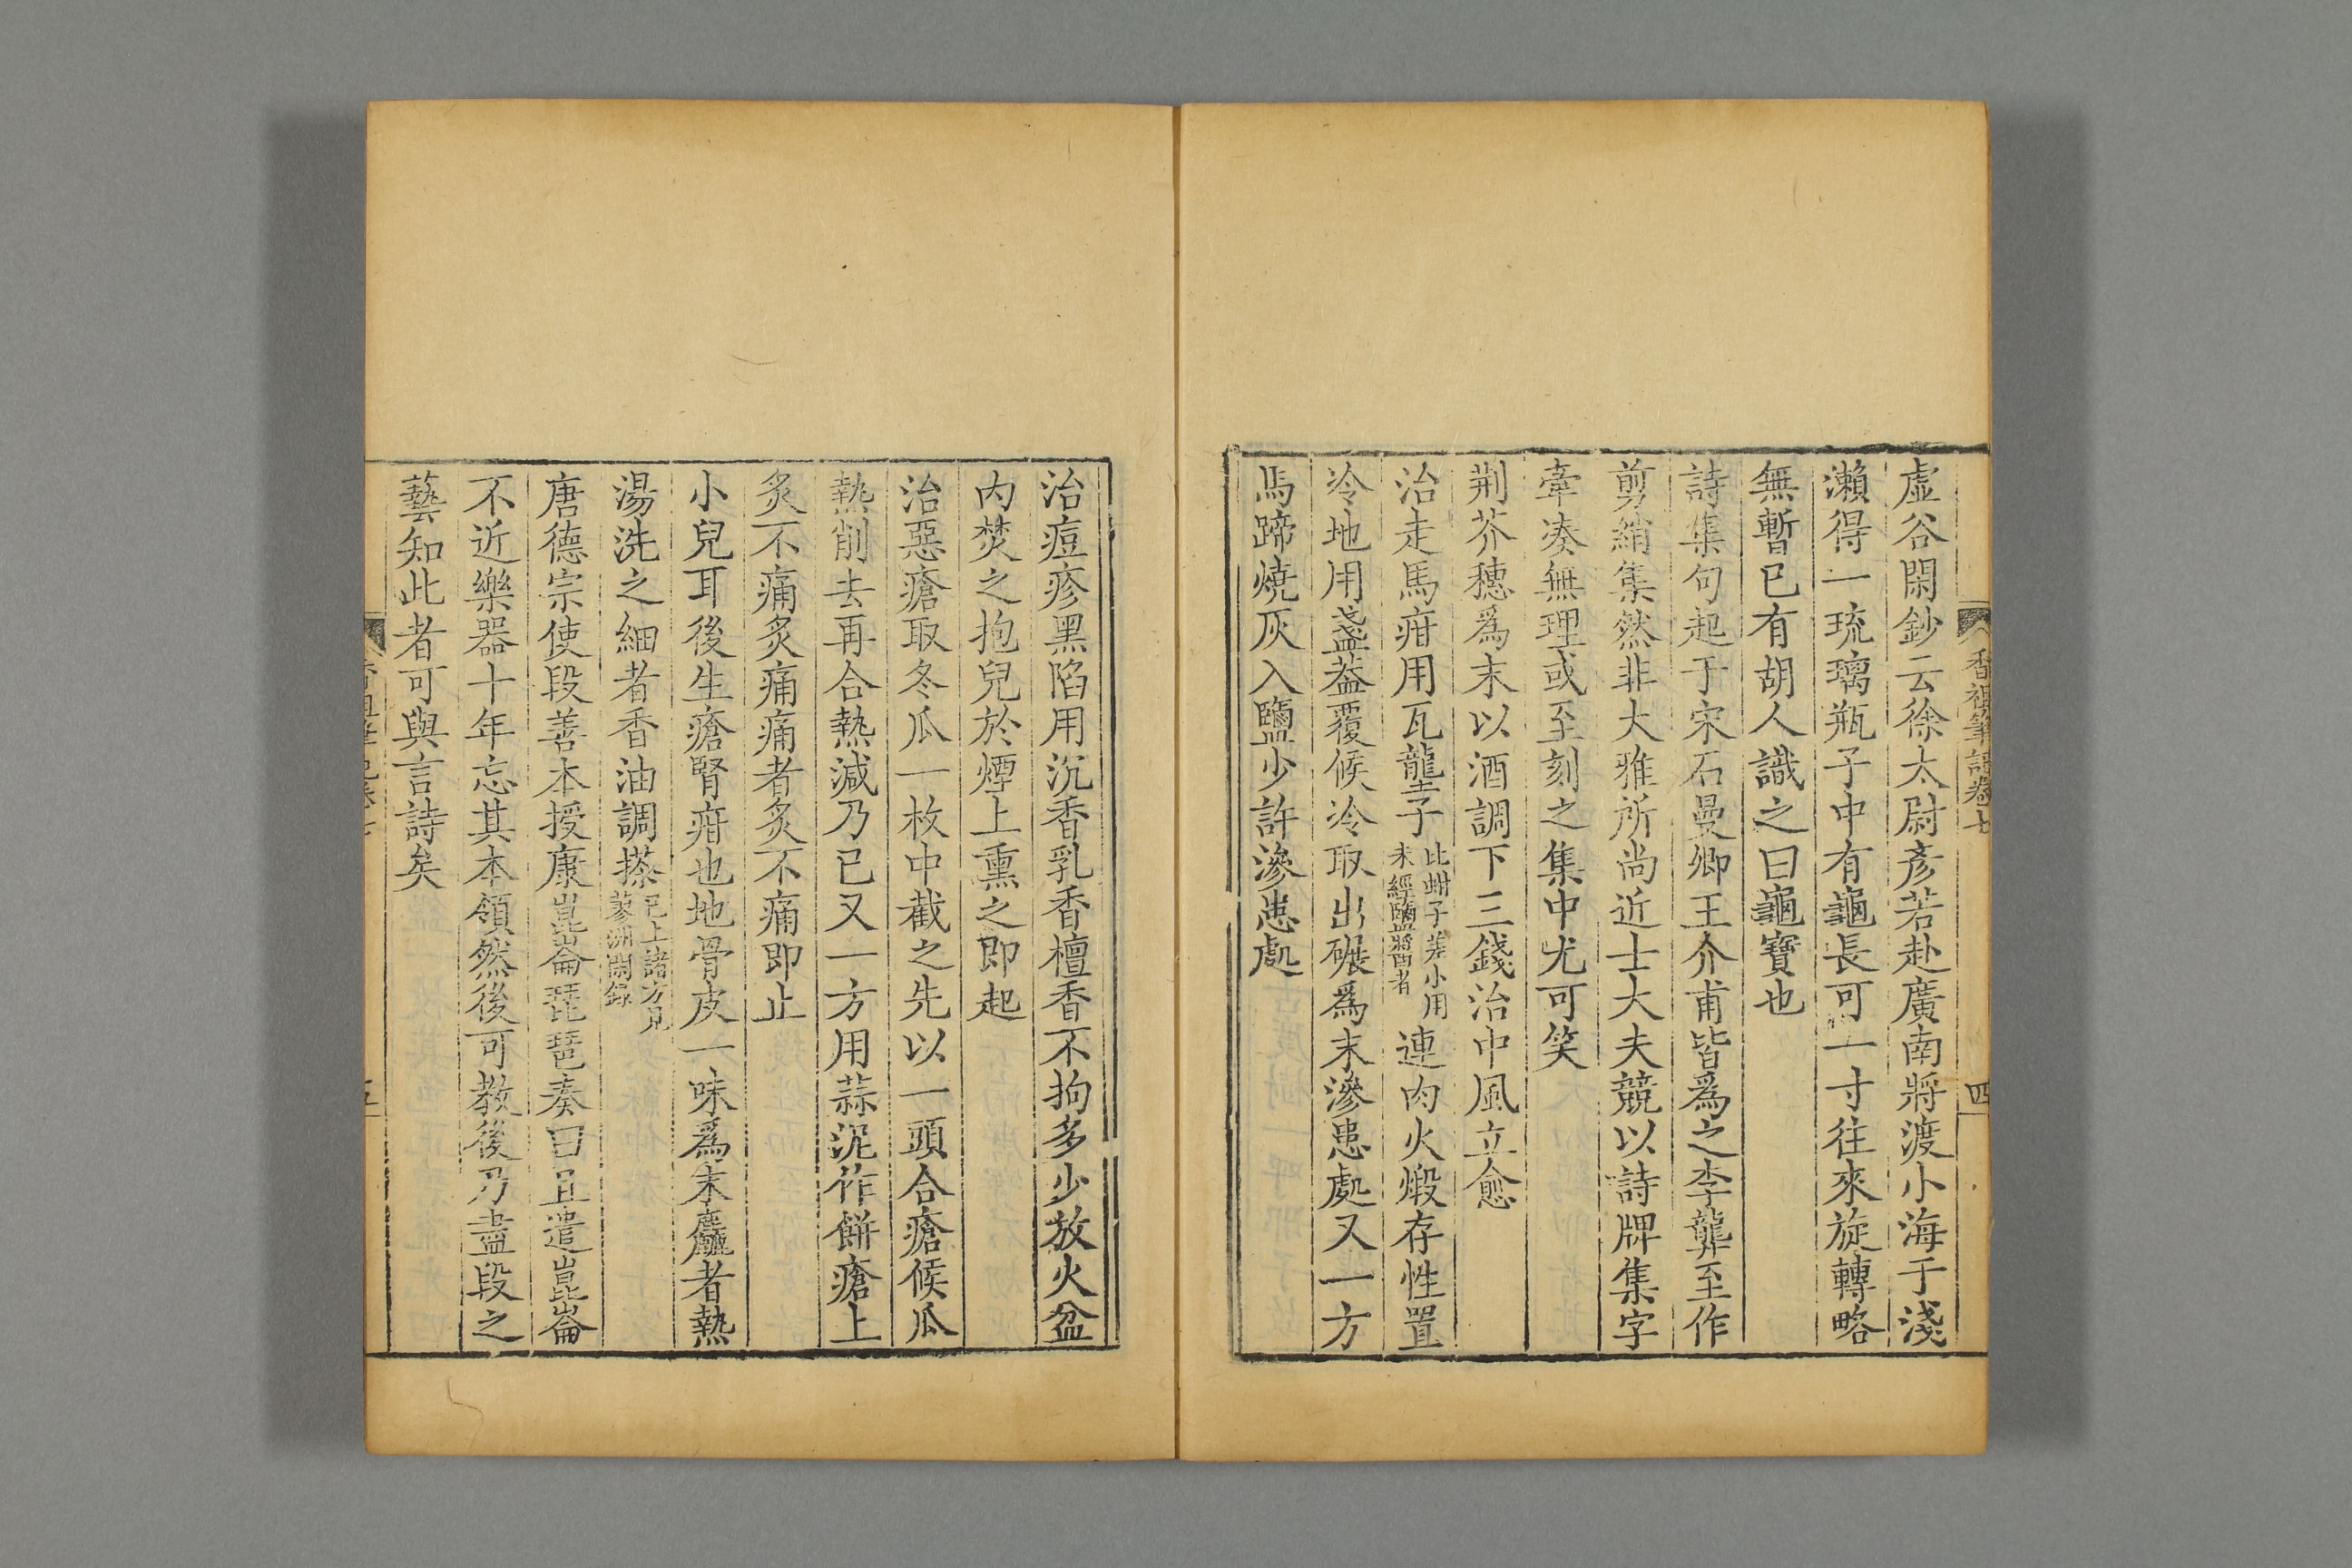 香祖筆記卷七
四
虛谷閑鈔云徐太尉彥若赴廣南將渡小海于淺
瀨得一琉璃瓶子中有龜長可一寸往來旋轉略
無暫已有胡人識之曰龜寶也
詩集句起于宋石曼卿王介甫皆爲之李龏至作
剪綃集然非大雅所尚近士大夫競以詩牌集字
牽凑無理或至刻之集中尤可笑
荆芥穗爲末以酒調下三錢治中風立愈
治走馬疳用瓦壟子比蚶子差小用未經鹽醬者連肉火煅存性置
冷地用盞葢覆候冷取出碾爲末滲患處又一方
馬蹄燒灰入鹽少許滲患處
治痘疹黑陷用沉香乳香檀香不拘多少放火盆
内焚之抱兒於煙上熏之即起
治惡瘡取冬瓜一枚中截之先以一頭合瘡候瓜
熱削去再合熱減乃已又一方用蒜泥作餅瘡上
炙不痛炙痛痛者炙不痛即止
小兒耳後生瘡腎疳也地骨皮一味爲末麤者熱
湯洗之細者香油調搽已上諸方見蓼洲閑録
唐德宗使段善本授康崑崙琵琶奏曰且遣崑崙
不近樂器十年忘其本領然後可教後乃盡段之
藝知此者可與言詩矣